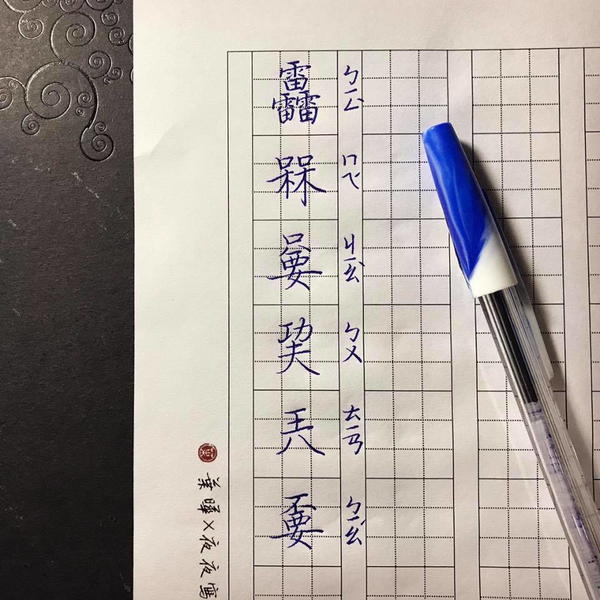 靐 ㄅㄧㄥˋ
槑 ㄇㄟˊ
嘦 ㄐㄧㄠˋ
巭 ㄅㄨ
兲 ㄊㄧㄢ
嫑 ㄅㄧㄠˊ
葉曄×夜夜寫